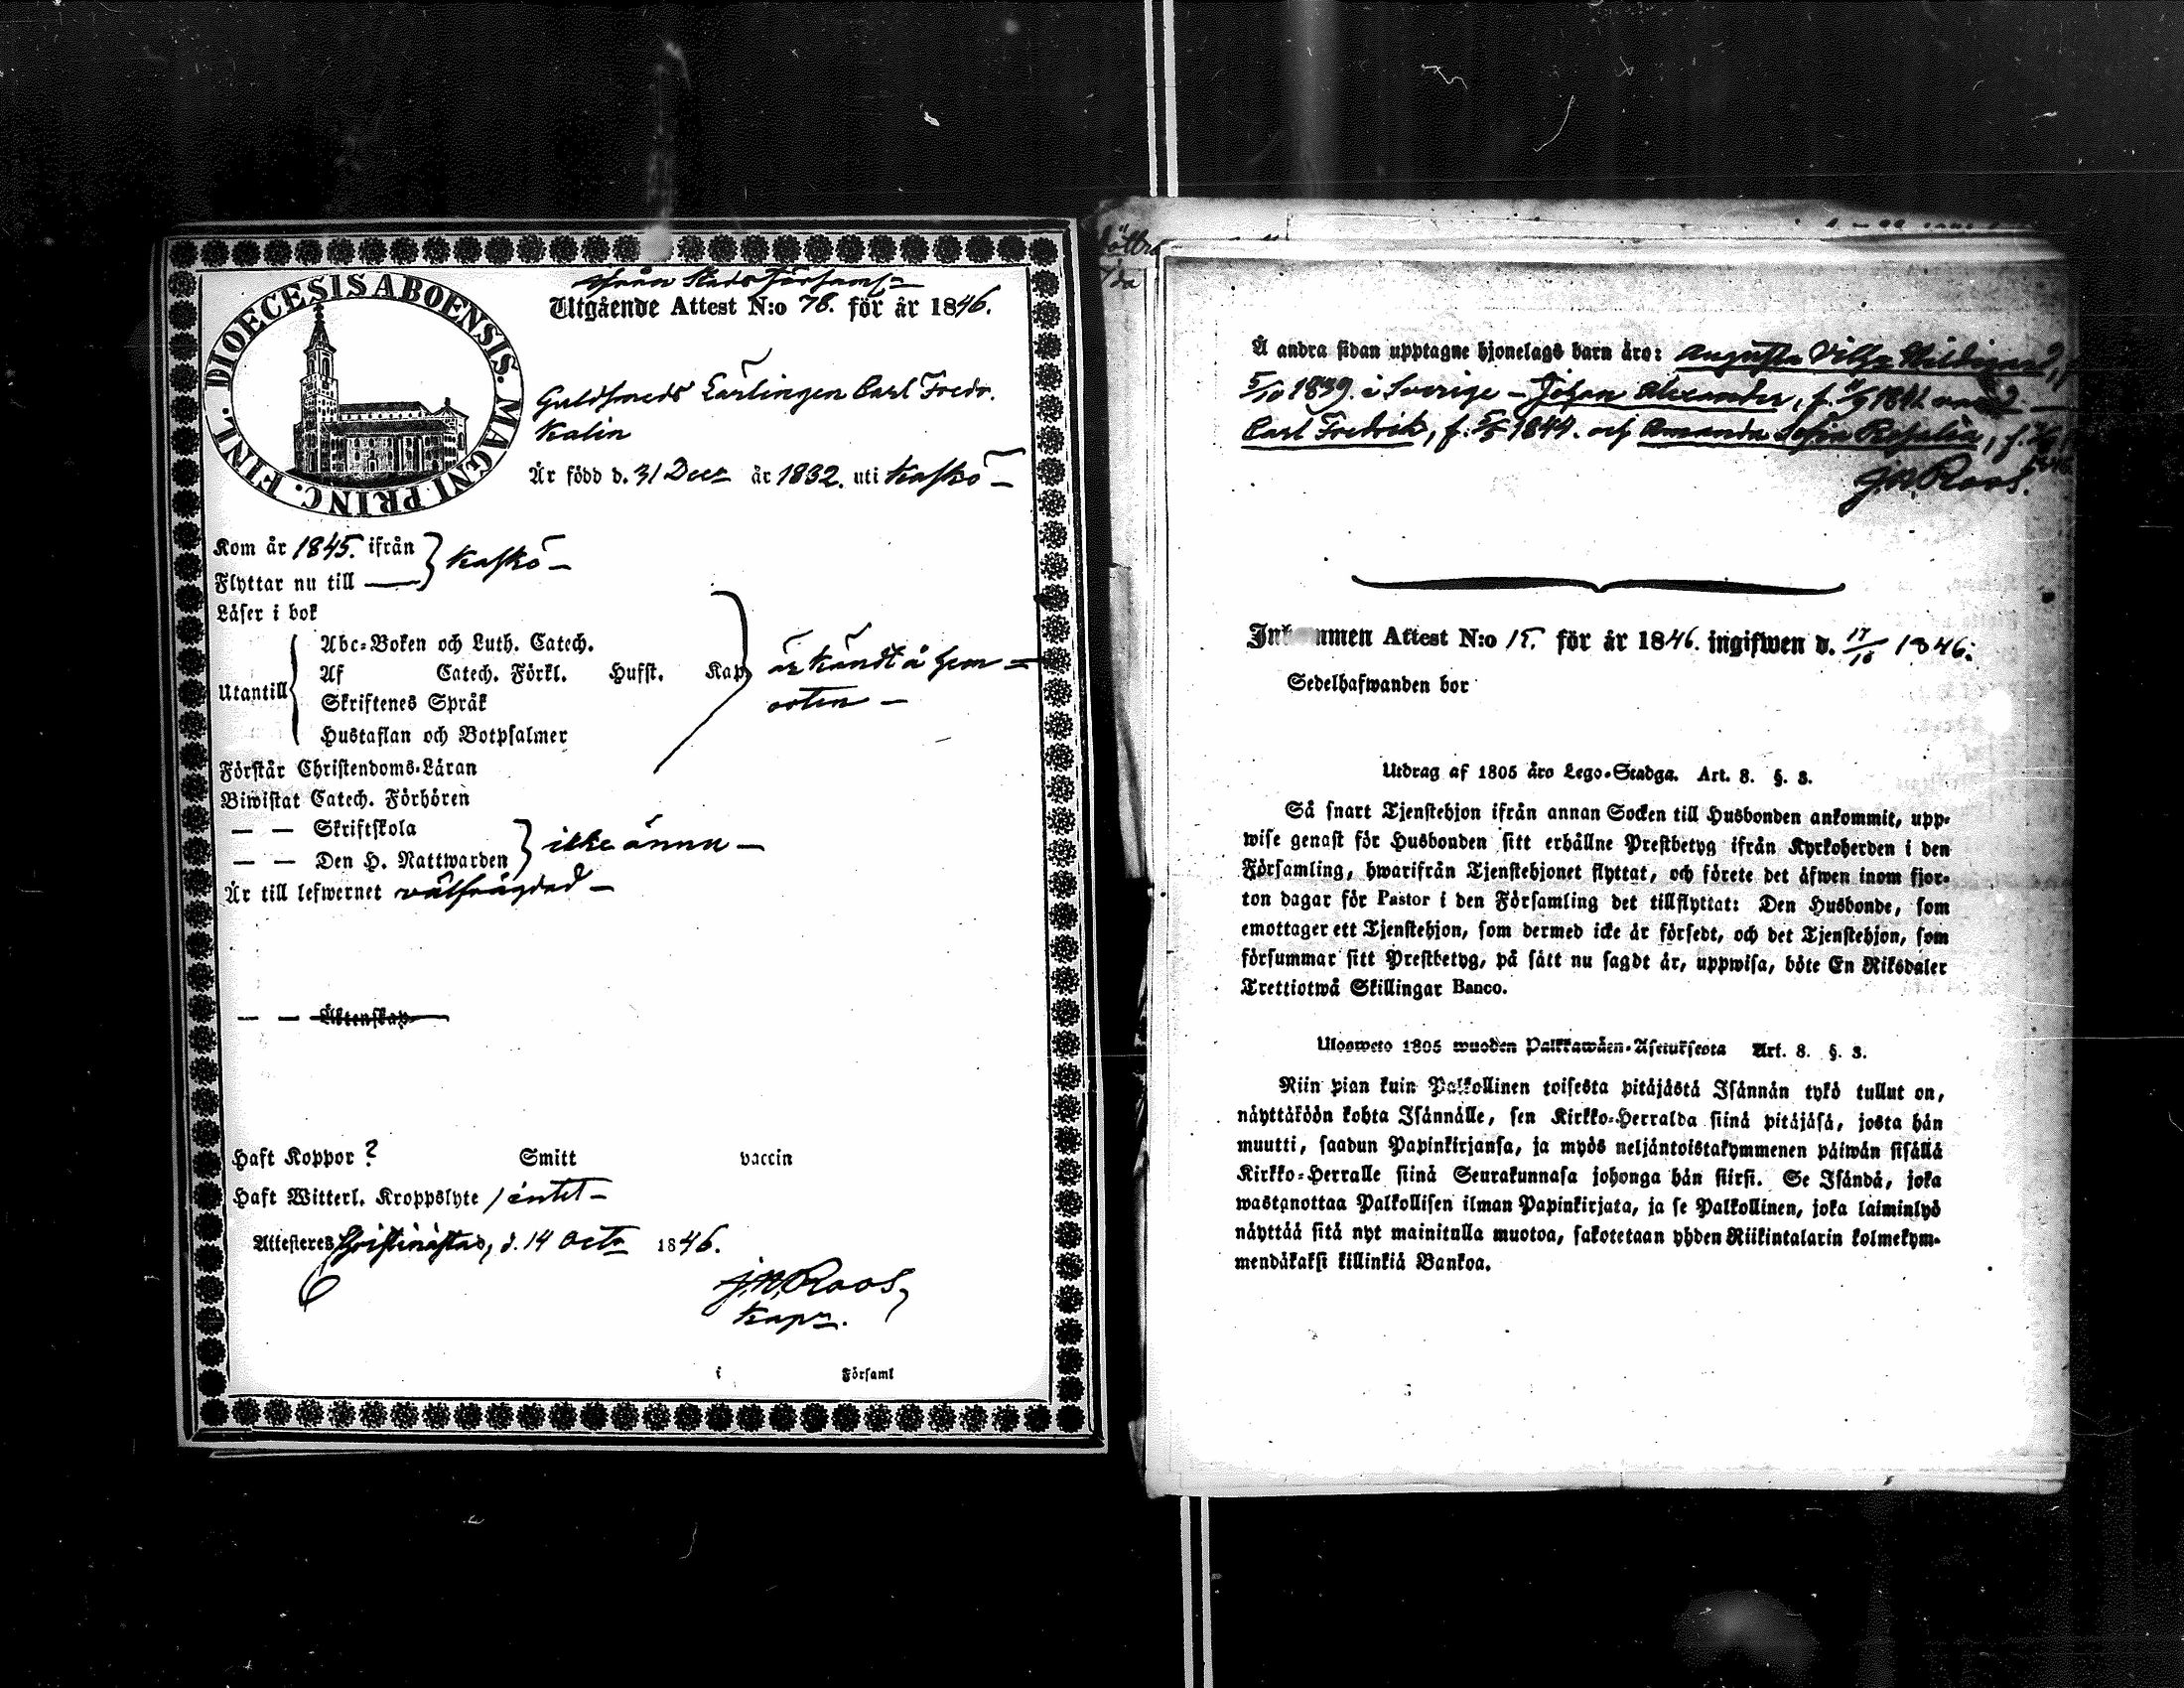 DIOECESIS ABOENSIS. MAGNI PRINC. FINL.
ifrån Stads Församl
Utgående Attest N:o 78. för år 1846.
Guldsmeds Lärlingen Carl Fredr.
Kalin
Är född d. 31 Decr år 1832. uti Kaskö
Kom år 1845. ifrån } Kaskö
Flyttar nu till
Läser i bok
Utantill
Abc-Boken och Luth. Catech.
Af Catech. Förkl. Hufst. Kap. är kändt å hem
Skriftenes Språk orten
Hustaflan och Botpsalmer
Förstår Christendoms-Läran
Biwistat Catech. Förhören
— — Skriftskola
— — Den H. Nattwarden } icke ännu
Är till lefwernet välfrägdad
— — Äktenskap
Haft Koppor ? Smitt vaccin
Haft Witterl. Kroppslyte intet
Attesteres Christinæstad, d. 14 Octr 1846.
J.N. Roos,
Kapn.
i Församl
döttra
Å andra sidan upptagne hjonelags barn äro: Augusta Vilh.
5/10 1839. i Sverige – Johan Alexander, f.
Carl Fredrik, f. 5/5 1844. och Amanda Sofia Rosalia, f.
J.N. Roos.
Inkommen Attest N:o 15. för år 1846. ingifwen d. 17/10 1846.
Sedelhafwanden bor
Utdrag af 1805 års Lego-Stadga. Art. 8. §. 3.
Så snart Tjenstehjon ifrån annan Socken till Husbonden ankommit, upp-
wise genast för Husbonden sitt erhållne Prestbetyg ifrån Kyrkoherden i den
Församling, hwarifrån Tjenstehjonet flyttat, och förete det äfwen inom fjor-
ton dagar för Pastor i den Församling det tillflyttat: Den Husbonde, som
emottager ett Tjenstehjon, som dermed icke är försedt, och det Tjenstehjon, som
försummar sitt Prestbetyg, på sätt nu sagdt är, uppwisa, böte En Riksdaler
Trettiotwå Skillingar Banco.
Ulosweto 1805 wuoden Palkkawäen-Asetuksesta Art. 8. §. 3.
Niin pian kuin Palkollinen toisesta pitäjästä Isännän tykö tullut on,
näyttäköön kohta Isännälle, sen Kirkko-Herralda siinä pitäjäsä, josta hän
muutti, saadun Papinkirjansa, ja myös neljäntoistakymmenen päiwän sisällä
Kirkko-Herralle siinä Seurakunnasa johonga hän siirsi. Se Isändä, joka
wastanottaa Palkollisen ilman Papinkirjata, ja se Palkollinen, joka laiminlyö
näyttää sitä nyt mainitulla muotoa, sakotetaan yhden Riikintalarin kolmekym-
mendäkaksi killinkiä Bankoa.